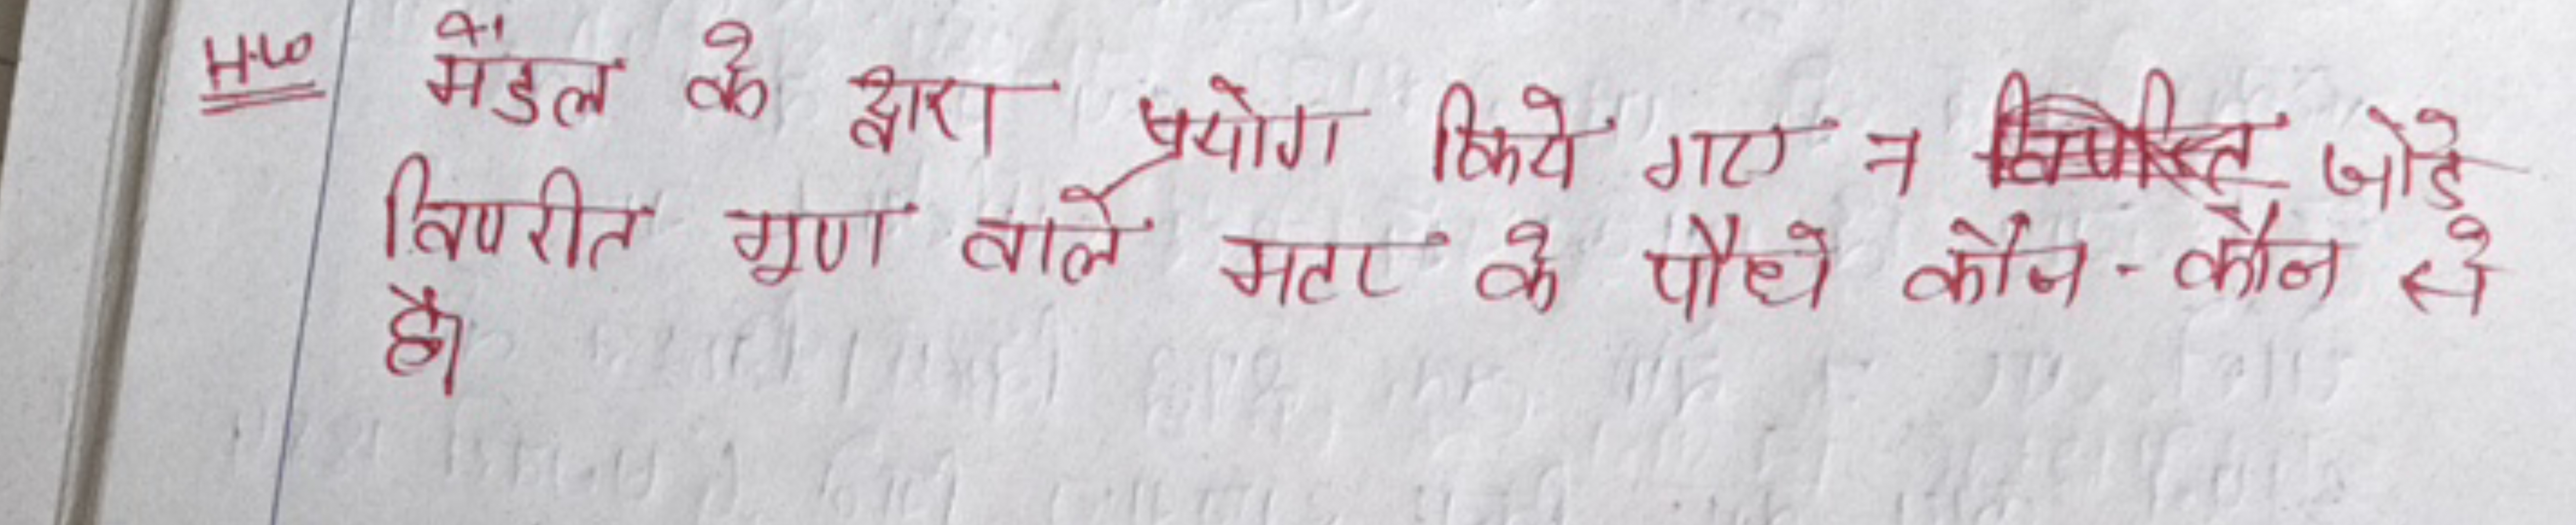 H.W मेंडल के द्वारा प्रयोग किये गए 7 जोड़े
विपरीत गुण वाले मटर के पौधे कौन-कौन से
है।